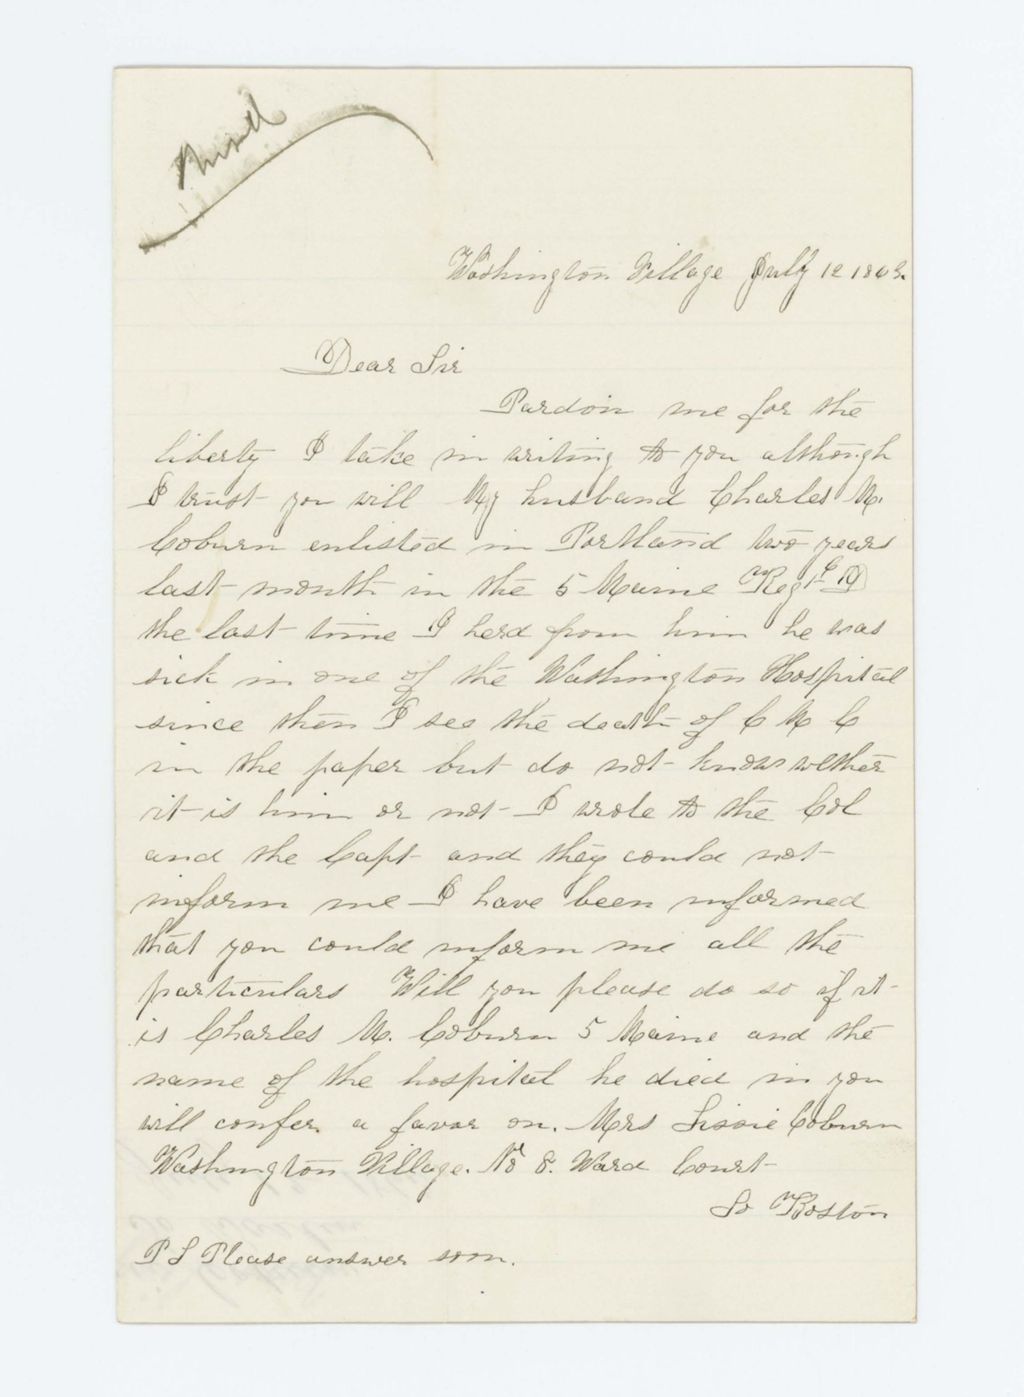 Washington Village July 12 1863.
Dear Sir
Pardon me for the
liberty I take in writing to you although
I trust you will My husband Charles M.
Coburn enlisted in Portland two years
last month in the 5 Maine Regt Co D
the last time I herd from him he was
sick in one of the Washington Hospital
since then I see the death of C M C
in the paper but do not know wether
it is him or not I wrote to the Col
and the Capt and they could not
inform me I have been informed
that you could inform me all the
particulars Will you please do so if it
is Charles M. Coburn 5 Maine and the
name of the hospital he died in you
will confer a favor on. Mrs Lissie Coburn
Washington Village. No 8. Ward Court
So Boston
P S Please answer soon.